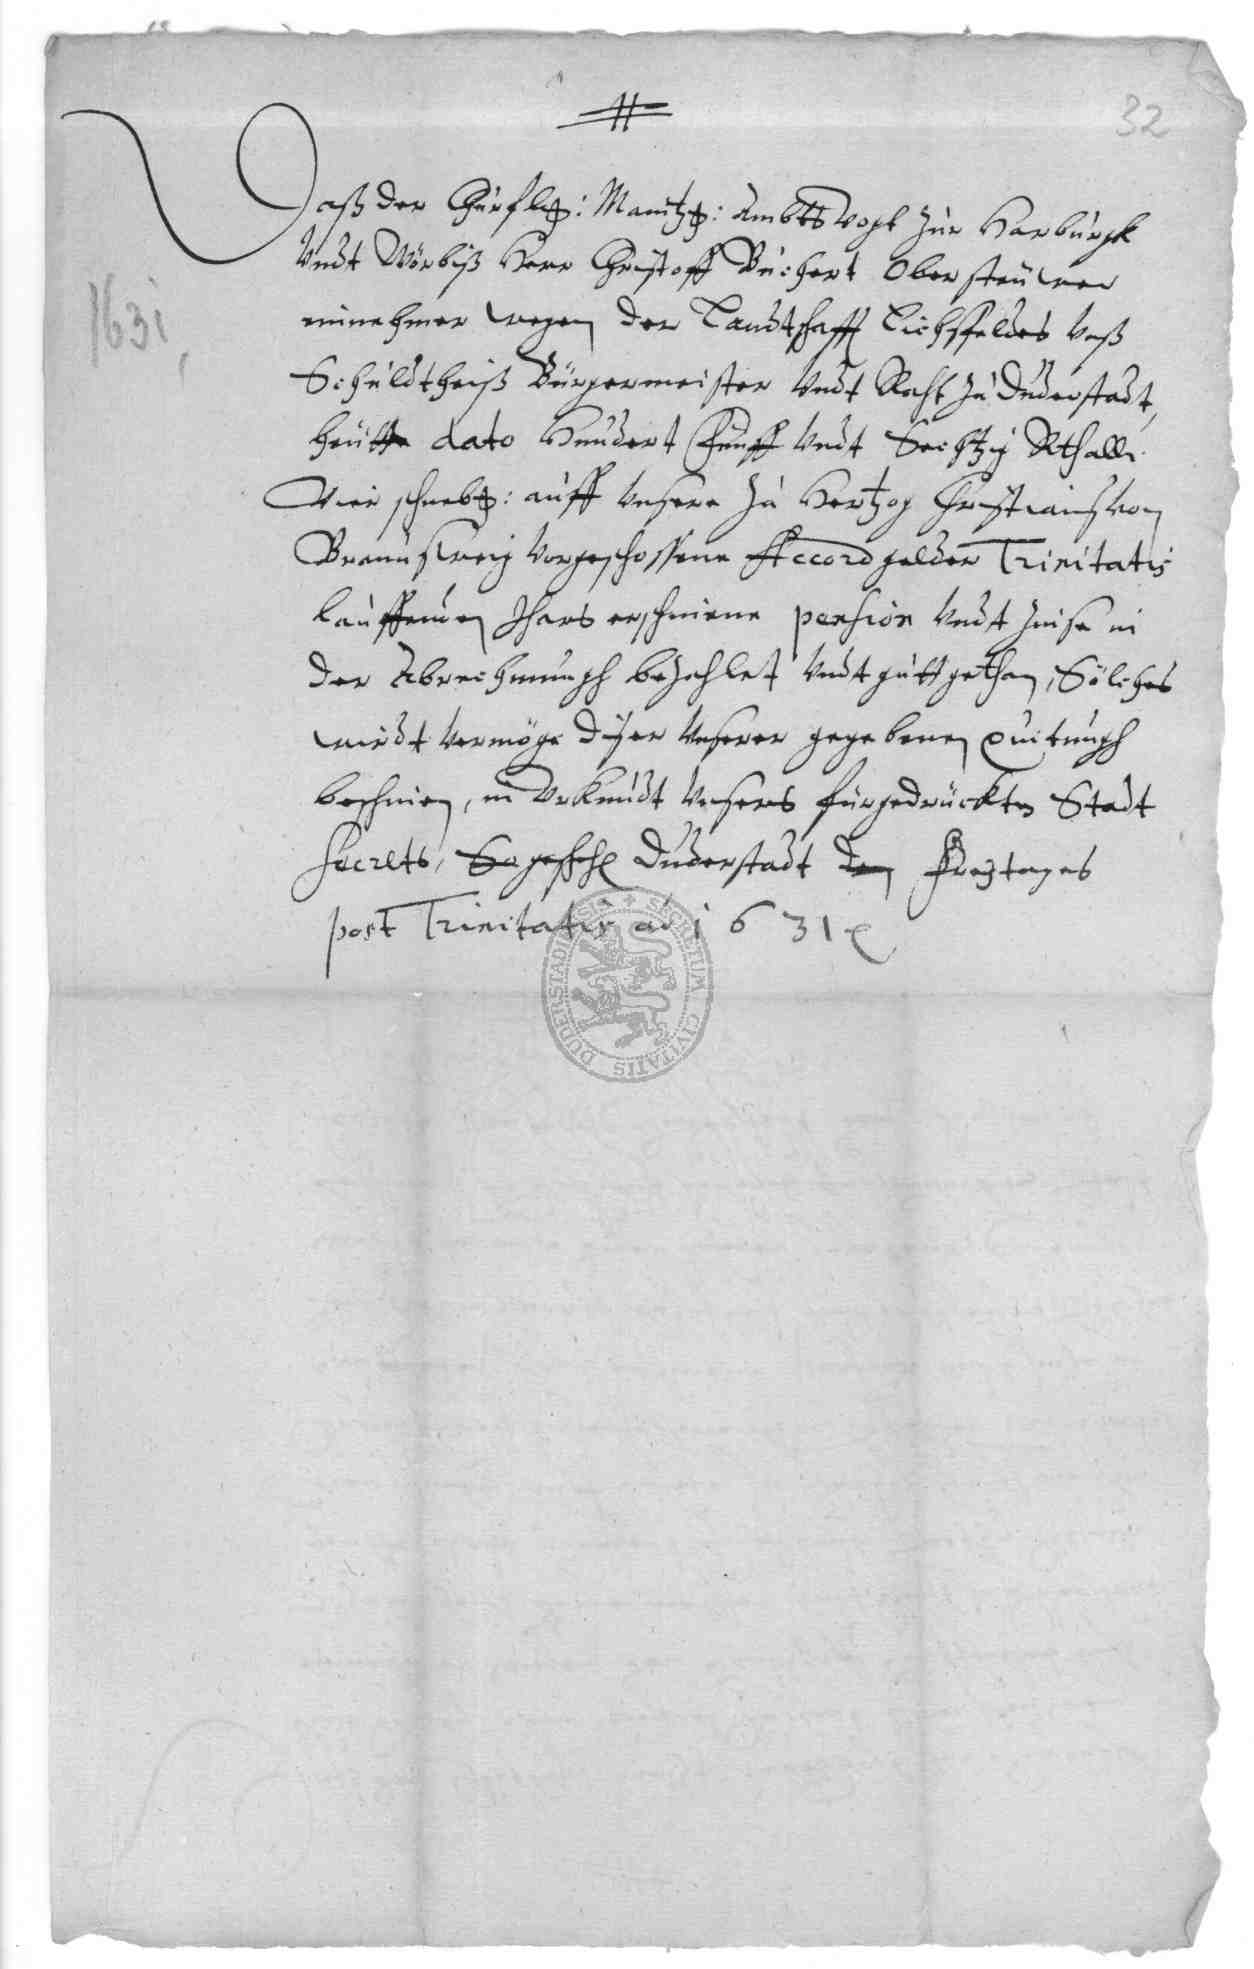 32
1631
Daß der Churfl: Maintz: Ambtsvogt zur Harburgk
Undt Wörbiß Herr Christoff Buchert Obersteuwer
einnehmer wegen der Landtschafft Eichsfeldes Unß
Schuldtheiß Bürgermeister Undt Raht zu Duderstadt,
heutte dato Hundert Funff Undt Sechtzig Rthall:
Vier schneb: auff Unsere zu Hertzog Christians von
Braunschweig Vorgeschossene Accord gelder Trinitatis
lauffenden Jhars erschienene pension Undt Zinse in
der Abrechnungh bezahlet Undt gutt gethan, Solches
wirdt Vermöge dißer Unserer gegebenen Quitungh
beschienen, in Urkundt Unsers fürgedrückten Stadt
Secrets, So geschehen Duderstadt den Freytages
post Trinitatis ao 1631
SECRETUM CIVITATIS DUDERSTADIENSIS